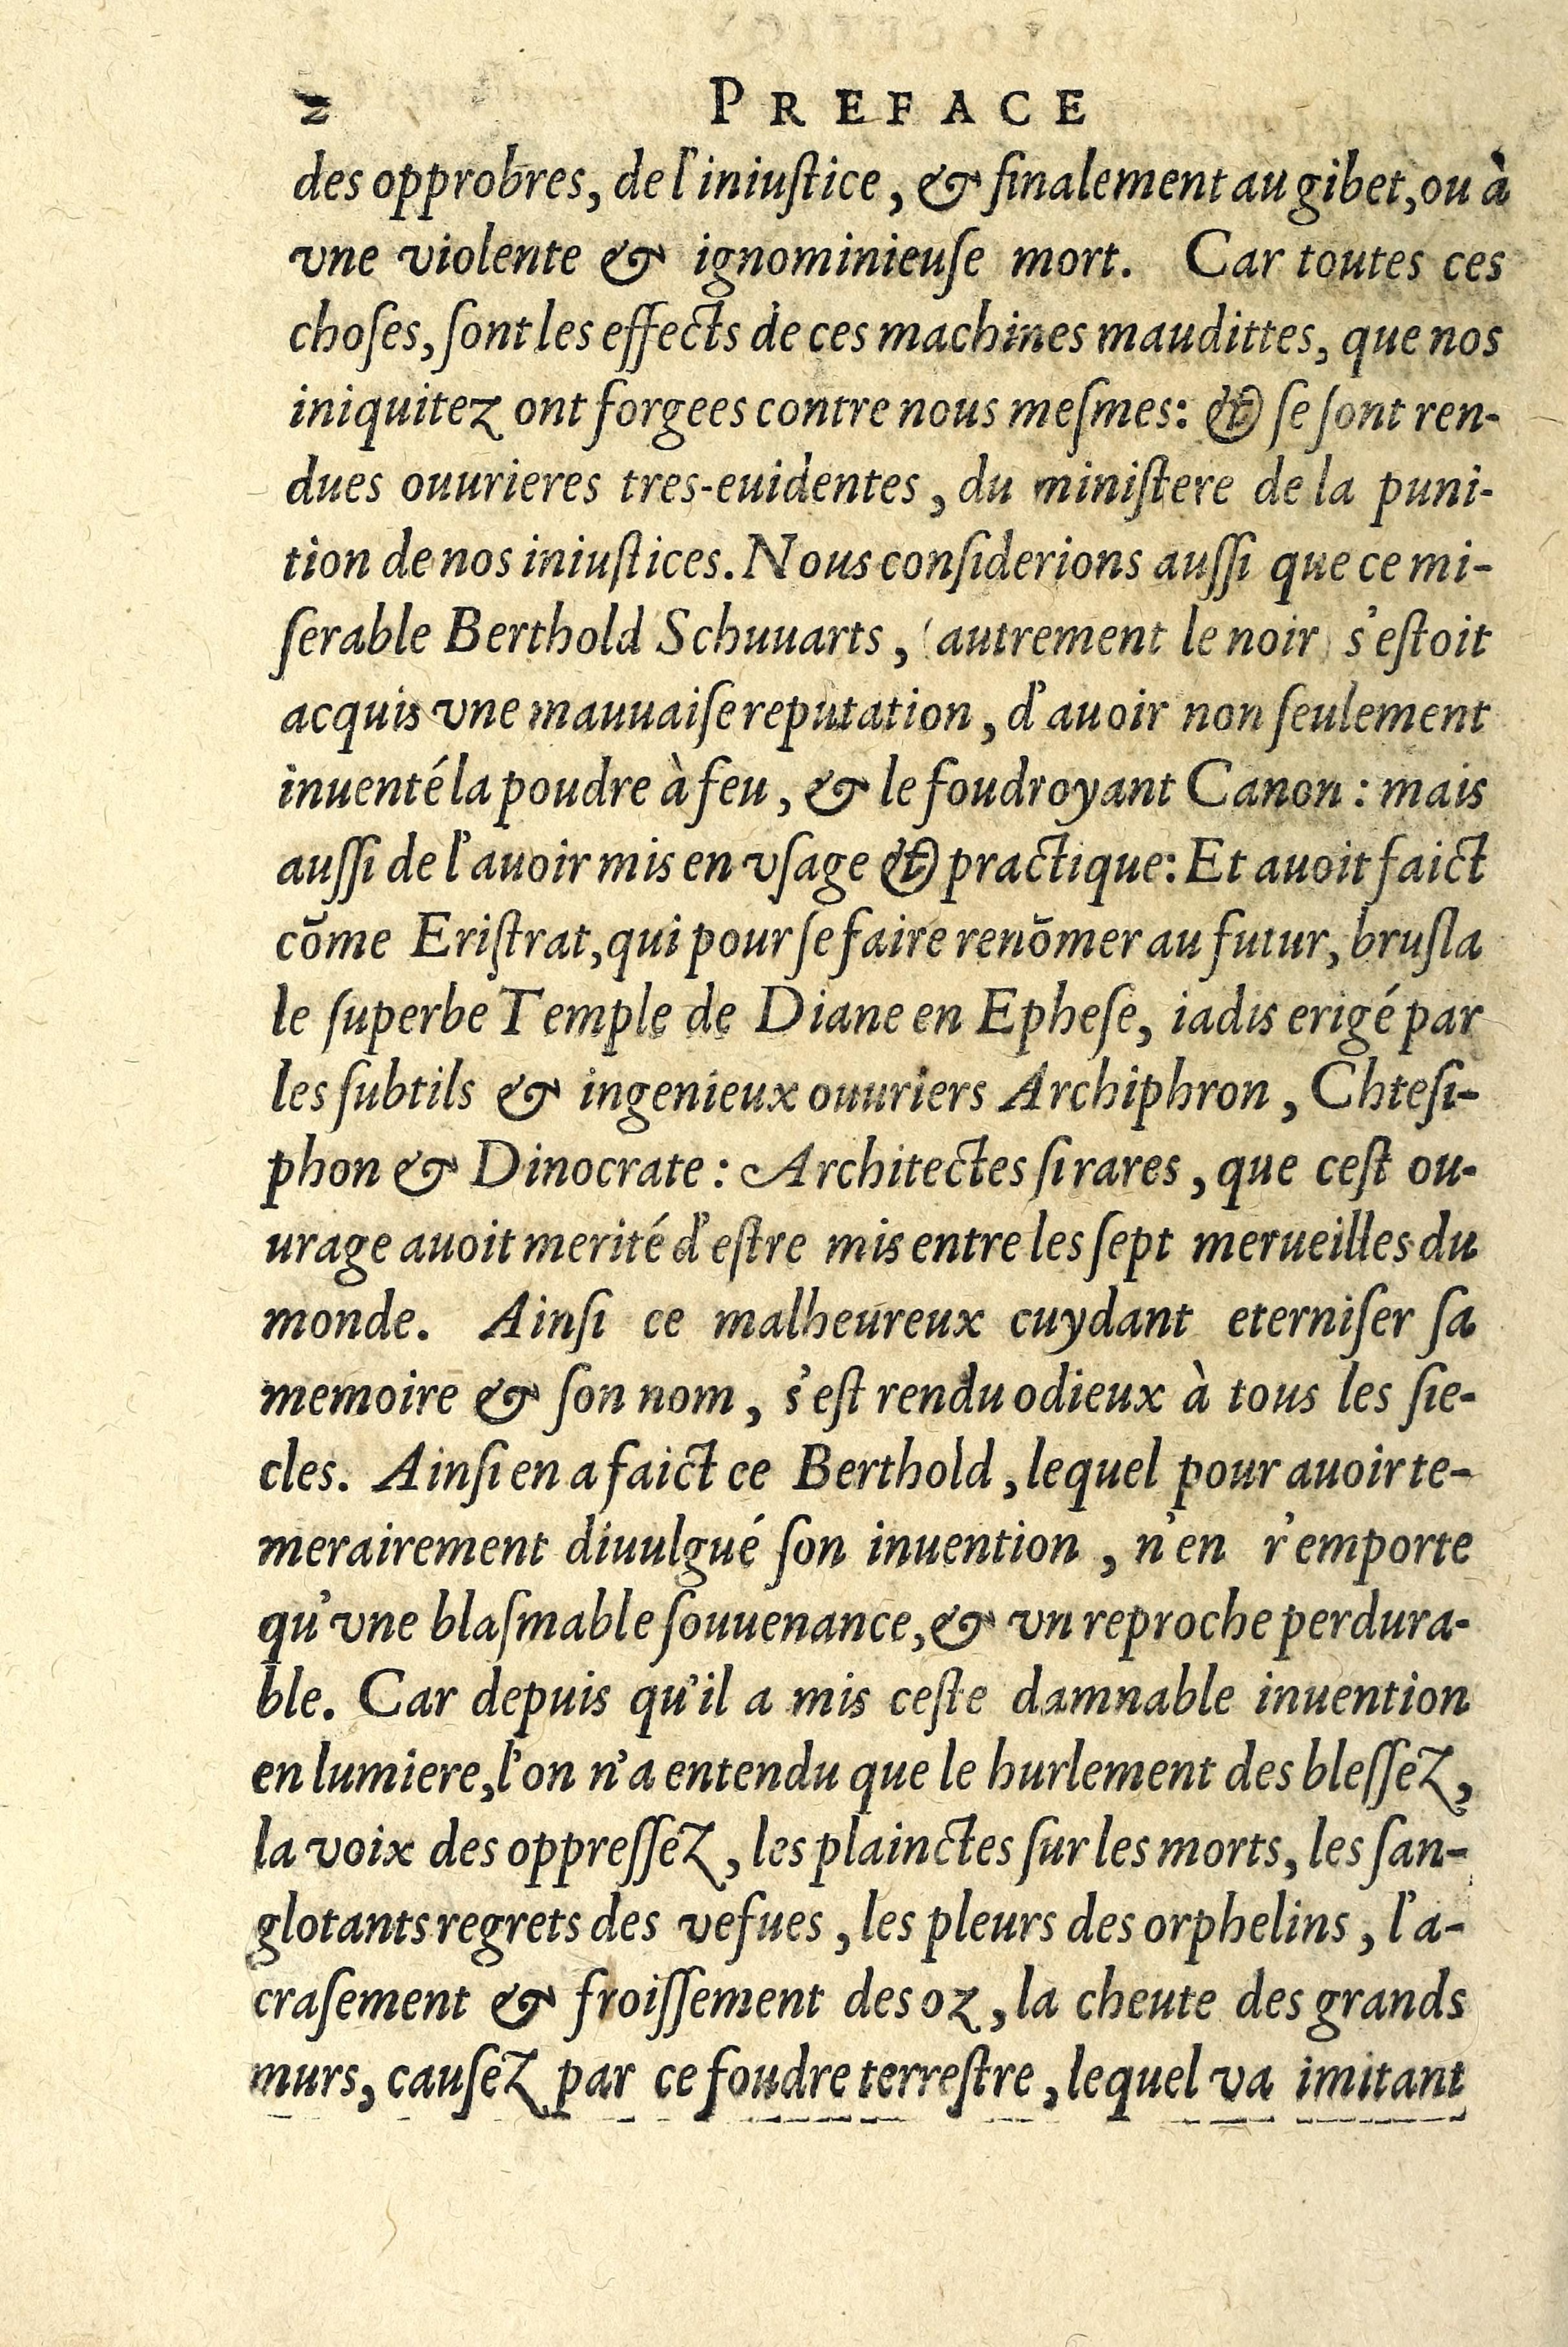 2 PREFACE
des opprobres, de l'iniuſtice, & finalement au gibet, ou à
vne violente & ignominieuſe mort. Car toutes ces
choſes, ſont les effects de ces machines maudittes, que nos
iniquitez ont forgees contre nous meſmes: & ſe ſont ren-
dues ouurieres tres-euidentes, du miniſtere de la puni-
tion de nos iniuſtices. Nous conſiderions auſſi que ce mi-
ſerable Berthold Schuuarts, (autrement le noir) s'eſtoit
acquis vne mauuaiſe reputation, d'auoir non ſeulement
inuenté la poudre à feu, & le foudroyant Canon: mais
auſſi de l'auoir mis en vſage & practique: Et auoit faict
cõme Eriſtrat, qui pour ſe faire renõmer au futur, bruſla
le ſuperbe Temple de Diane en Epheſe, iadis erigé par
les ſubtils & ingenieux ouuriers Archiphron, Chteſi-
phon & Dinocrate: Architectes ſi rares, que ceſt ou-
urage auoit merité d'eſtre mis entre les ſept merueilles du
monde. Ainſi ce malheureux cuydant eterniſer ſa
memoire & ſon nom, s'eſt rendu odieux à tous les ſie-
cles. Ainſi en a faict ce Berthold, lequel pour auoir te-
merairement diuulgué ſon inuention, n'en r'emporte
qu'vne blaſmable ſouuenance, & vn reproche perdura-
ble. Car depuis qu'il a mis ceſte damnable inuention
en lumiere, l'on n'a entendu que le hurlement des bleſſeZ,
la voix des oppreſſeZ, les plainctes ſur les morts, les ſan-
glotants regrets des vefues, les pleurs des orphelins, l'a-
craſement & froiſſement des oz, la cheute des grands
murs, cauſeZ par ce foudre terreſtre, lequel va imitant